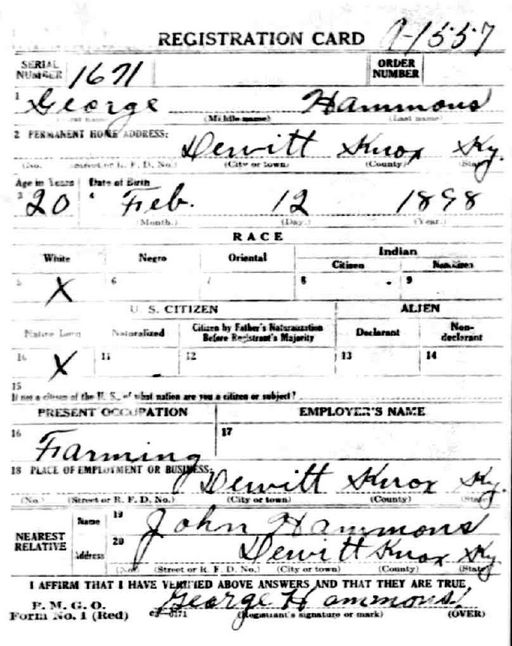 REGISTRATION CARD 9-1557
SERIAL NUMBER 1671 ORDER NUMBER
1 George Hammons
(Middle name) (Last name)
2 PERMANENT HOME ADDRESS:
Dewitt Knox Ky.
(No.) (Street or R. F. D. No.) (City or town) (County) (State)
Age in Years Date of Birth
3 20 4 Feb. 12 1898
(Month.) (Day.) (Year.)
RACE
White Negro Oriental Indian
Citizen Noncitizen
5 X 6 7 8 9
U. S. CITIZEN ALIEN
Native Born Naturalized Citizen by Father's Naturalization Before Registrant's Majority Declarant Non-declarant
10 X 11 12 13 14
15
If not a citizen of the U. S., of what nation are you a citizen or subject?
PRESENT OCCUPATION EMPLOYER'S NAME
16 Farming 17
18 PLACE OF EMPLOYMENT OR BUSINESS:
Dewitt Knox Ky.
(No.) (Street or R. F. D. No.) (City or town) (County) (State)
NEAREST RELATIVE Name 19 John Hammons
Address 20 Dewitt Knox Ky.
(No.) (Street or R. F. D. No.) (City or town) (County) (State)
I AFFIRM THAT I HAVE VERIFIED ABOVE ANSWERS AND THAT THEY ARE TRUE
P. M. G. O.
Form No. 1 (Red) George Hammons
(Registrant's signature or mark) (OVER)